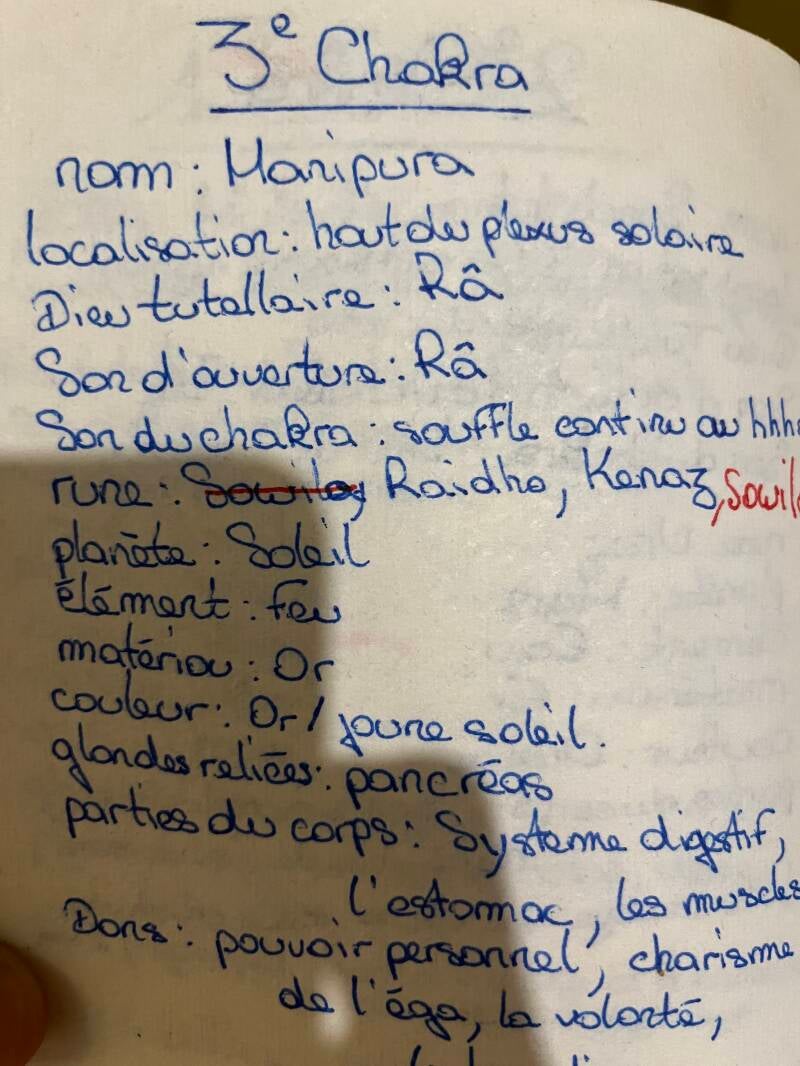 3e Chakra
nom : Manipura
localisation : haut du plexus solaire
Dieu tutellaire : Râ
Son d'ouverture : Râ
Son du chakra : souffle continu au hhh
rune : Sowilo, Raidho, Kenaz, Sowil
planète : Soleil
élément : feu
matériau : Or
couleur : Or / jaune soleil.
glandes reliées : pancréas
parties du corps : Système digestif,
l'estomac, les muscles
Dons : pouvoir personnel, charisme
de l'égo, la volonté,